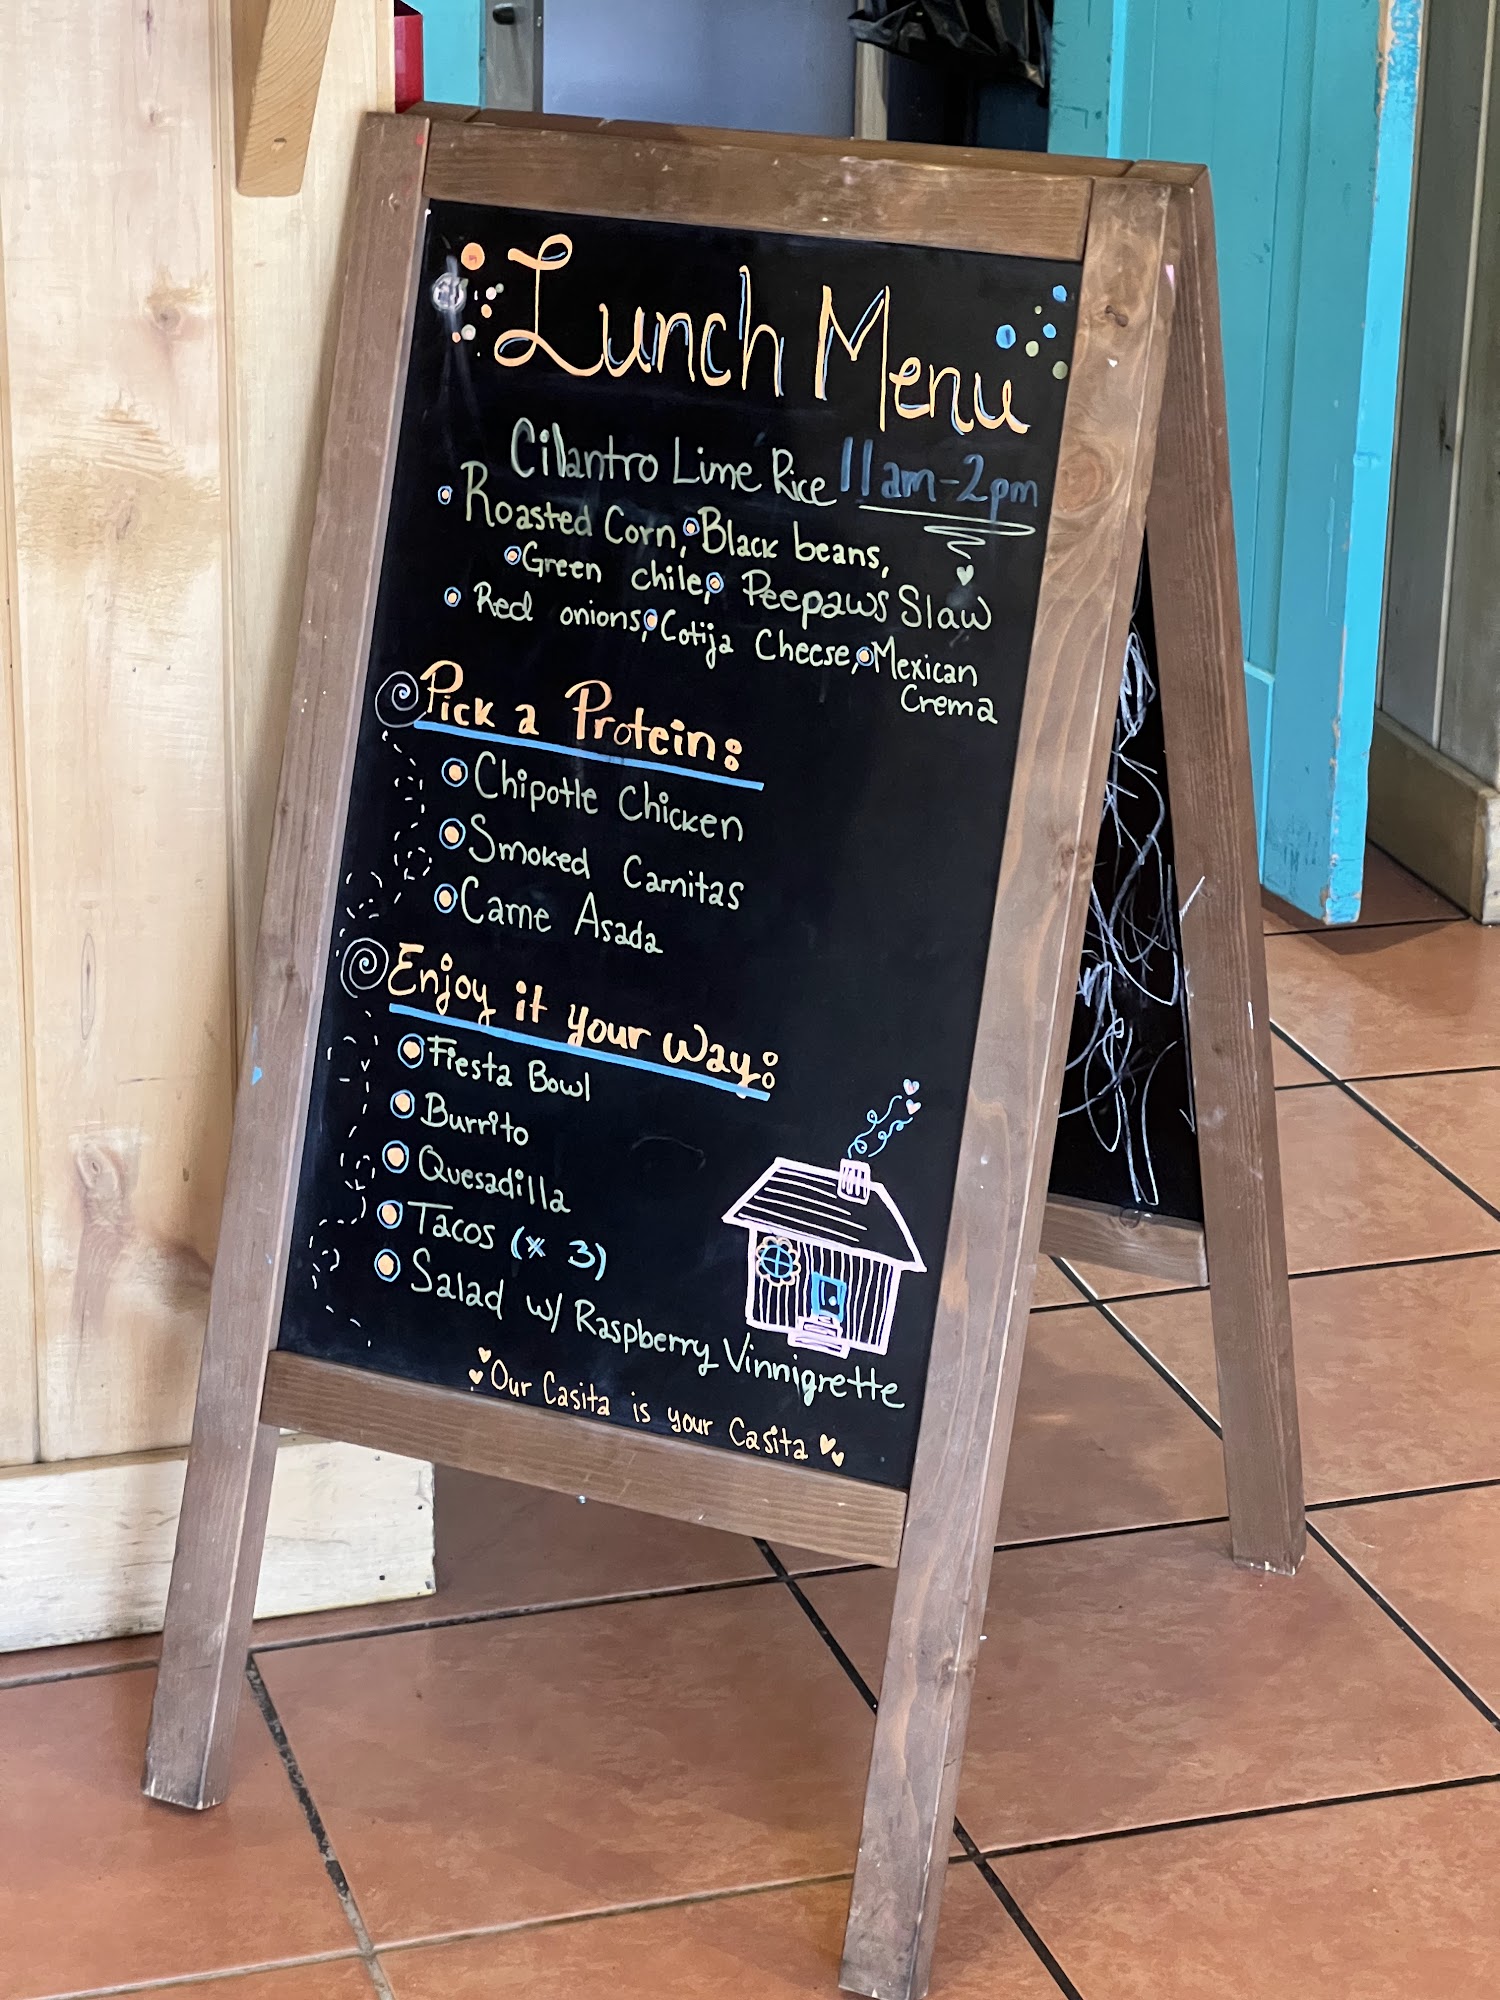 Lunch Menu
Cilantro Lime Rice 11am-2pm
Roasted Corn, Black beans,
Green chile, Peepaws Slaw
Red onions, Cotija Cheese, Mexican
Crema
Pick a Protein:
Chipotle Chicken
Smoked Carnitas
Carne Asada
Enjoy it your way:
Fiesta Bowl
Burrito
Quesadilla
Tacos (x 3)
Salad w/ Raspberry Vinnigrette
Our Casita is your Casita